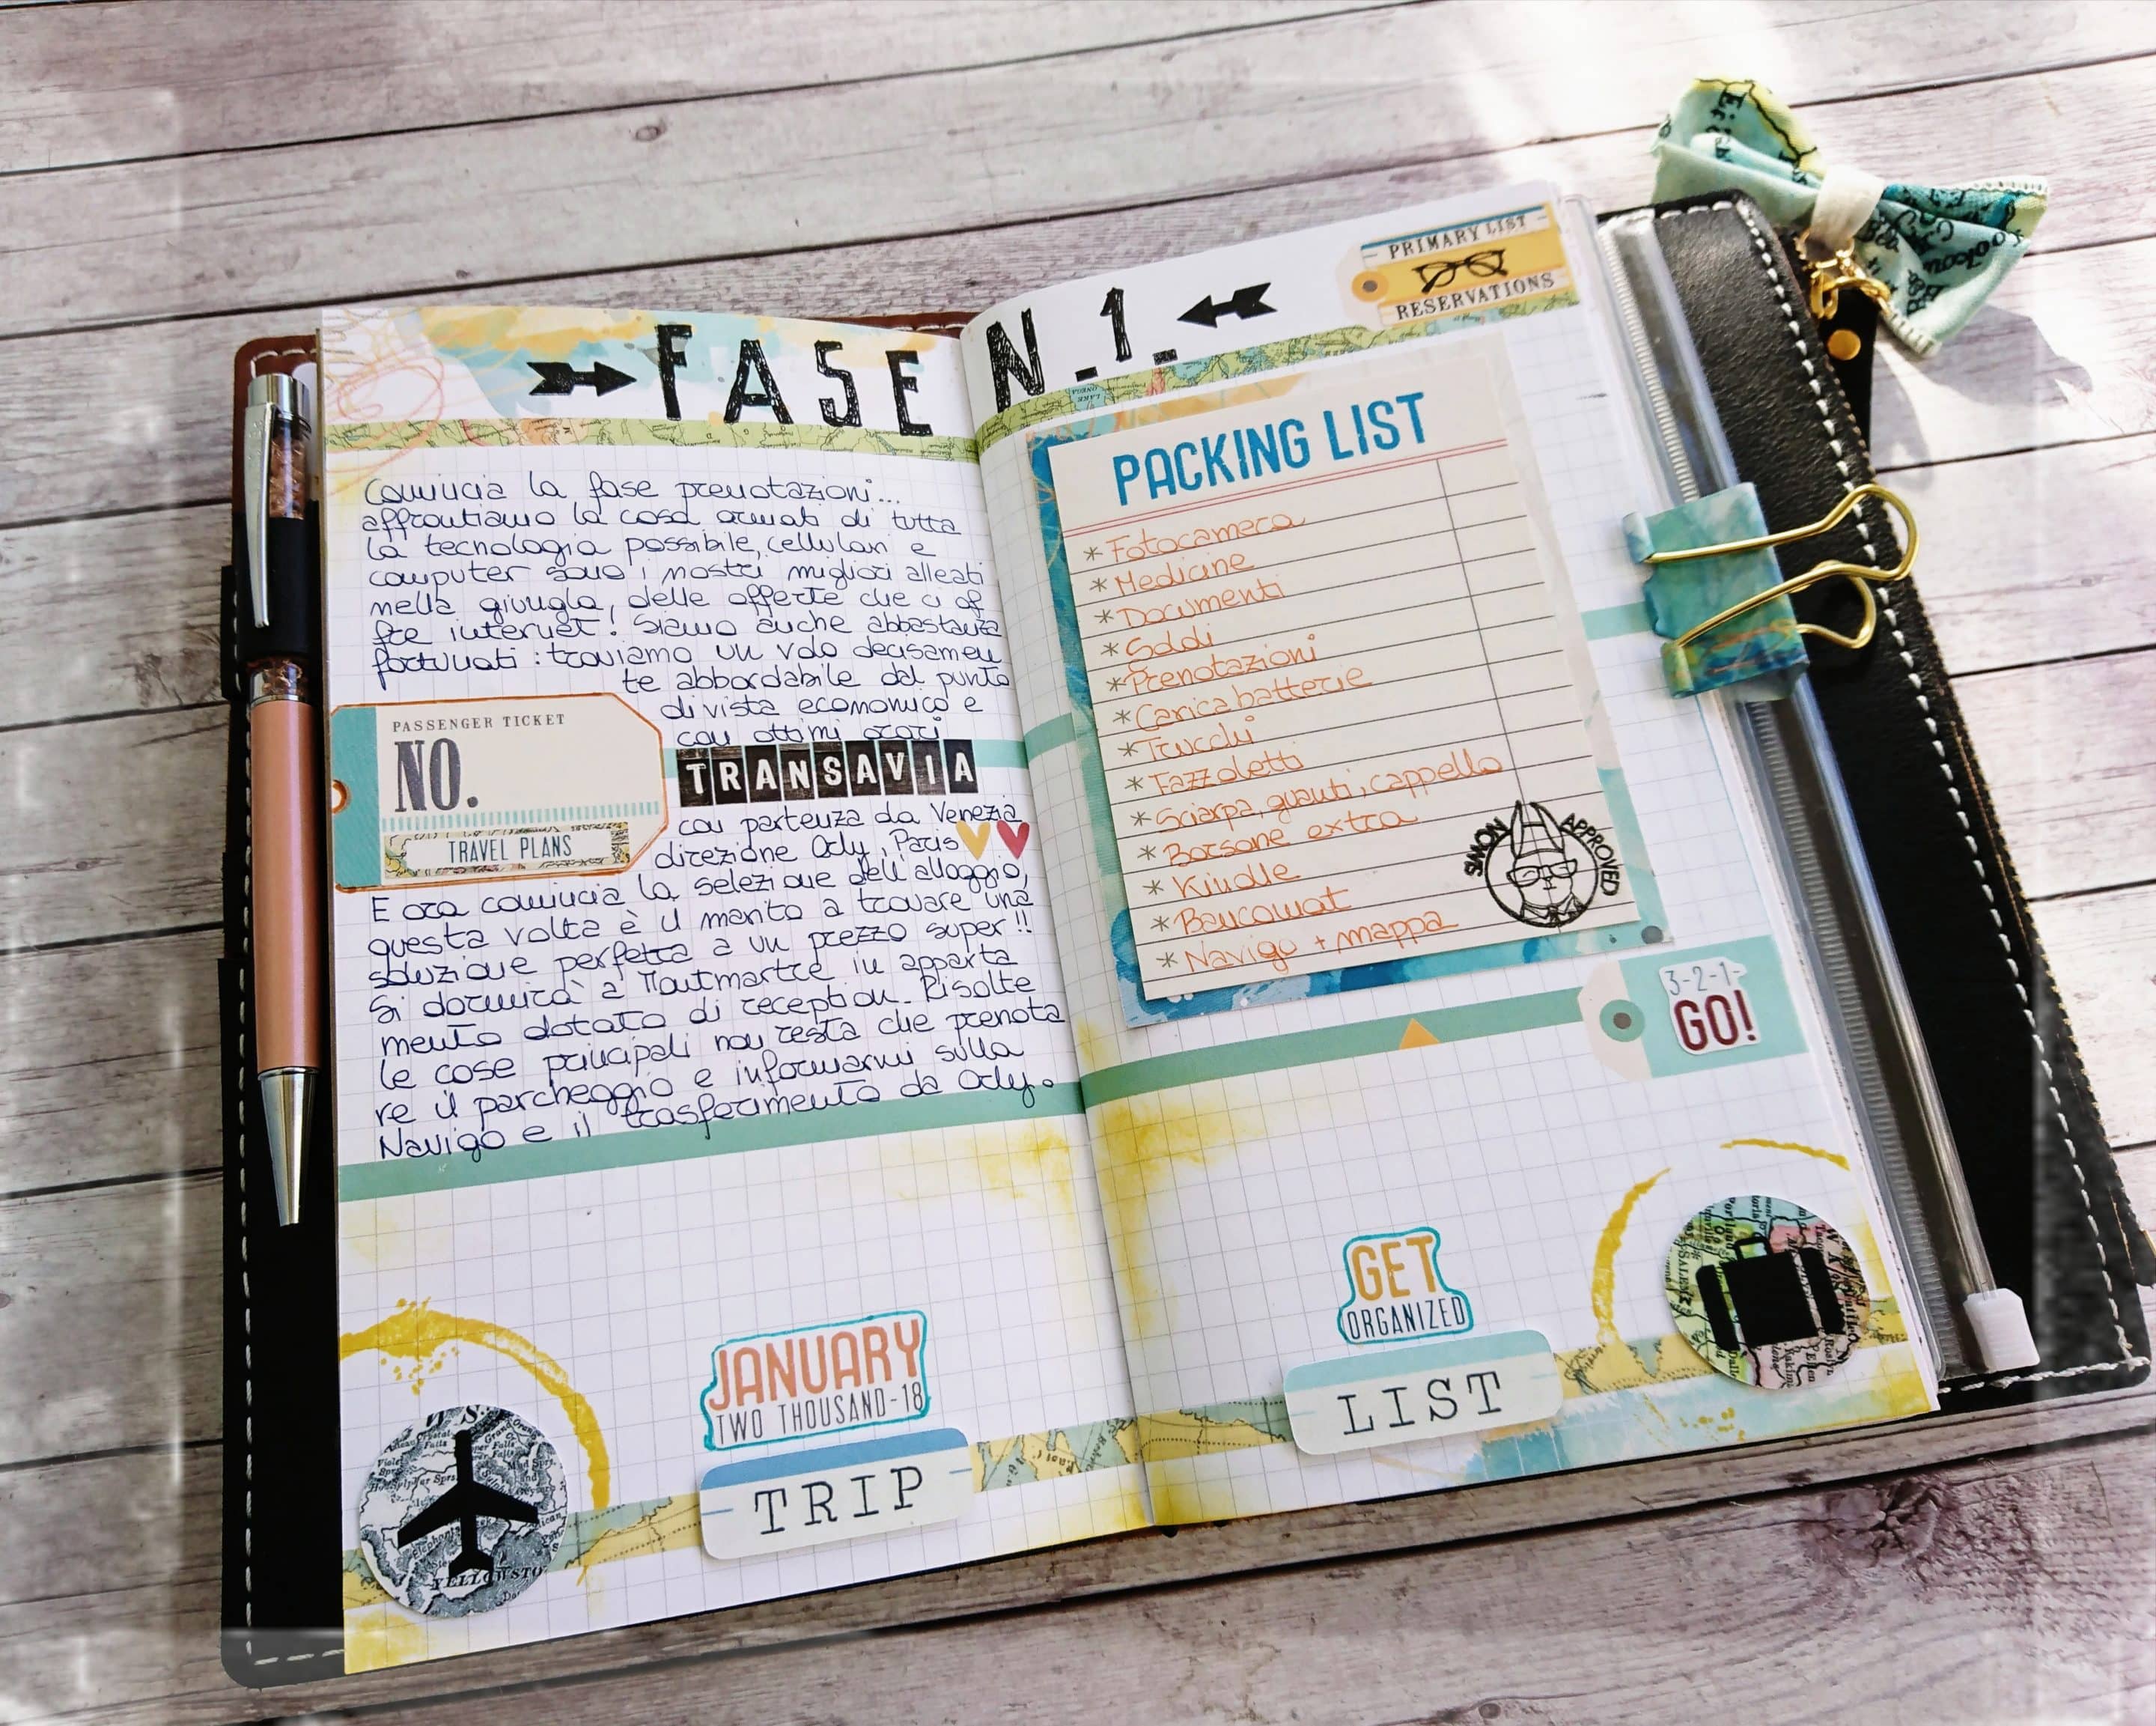 FASE N.1.
PRIMARY LIST
RESERVATIONS
Comincia la fase prenotazioni...
affrontiamo la cosa armati di tutta
la tecnologia possibile, cellulari e
computer sono i nostri migliori alleati
nella giungla, delle offerte che ci of
fre internet! Siamo anche abbastanza
fortunati: troviamo un volo decisamen
te abbordabile dal punto
di vista economico e
con ottimi orari
PASSENGER TICKET
NO.
TRAVEL PLANS
TRANSAVIA
con partenza da Venezia
direzione Orly, Paris
E ora comincia la selezione dell'alloggio,
questa volta è il marito a trovare una
soluzione perfetta a un prezzo super!!
Si dormirà a Montmartre in apparta
mento dotato di reception. Risolte
le cose principali non resta che prenota
re il parcheggio e informarmi sulla
Navigo e il trasferimento da Orly.
JANUARY
TWO THOUSAND-18
TRIP
YELLOWSTO
PACKING LIST
* Fotocamera
* Medicine
* Documenti
* Soldi
* Prenotazioni
* Carica batterie
* Trucchi
* Fazzoletti
* Sciarpa, guanti, cappello
* Borsone extra
* Kindle
* Bancomat
* Navigo + mappa
SIMON APPROVED
3-2-1-
GO!
GET
ORGANIZED
LIST